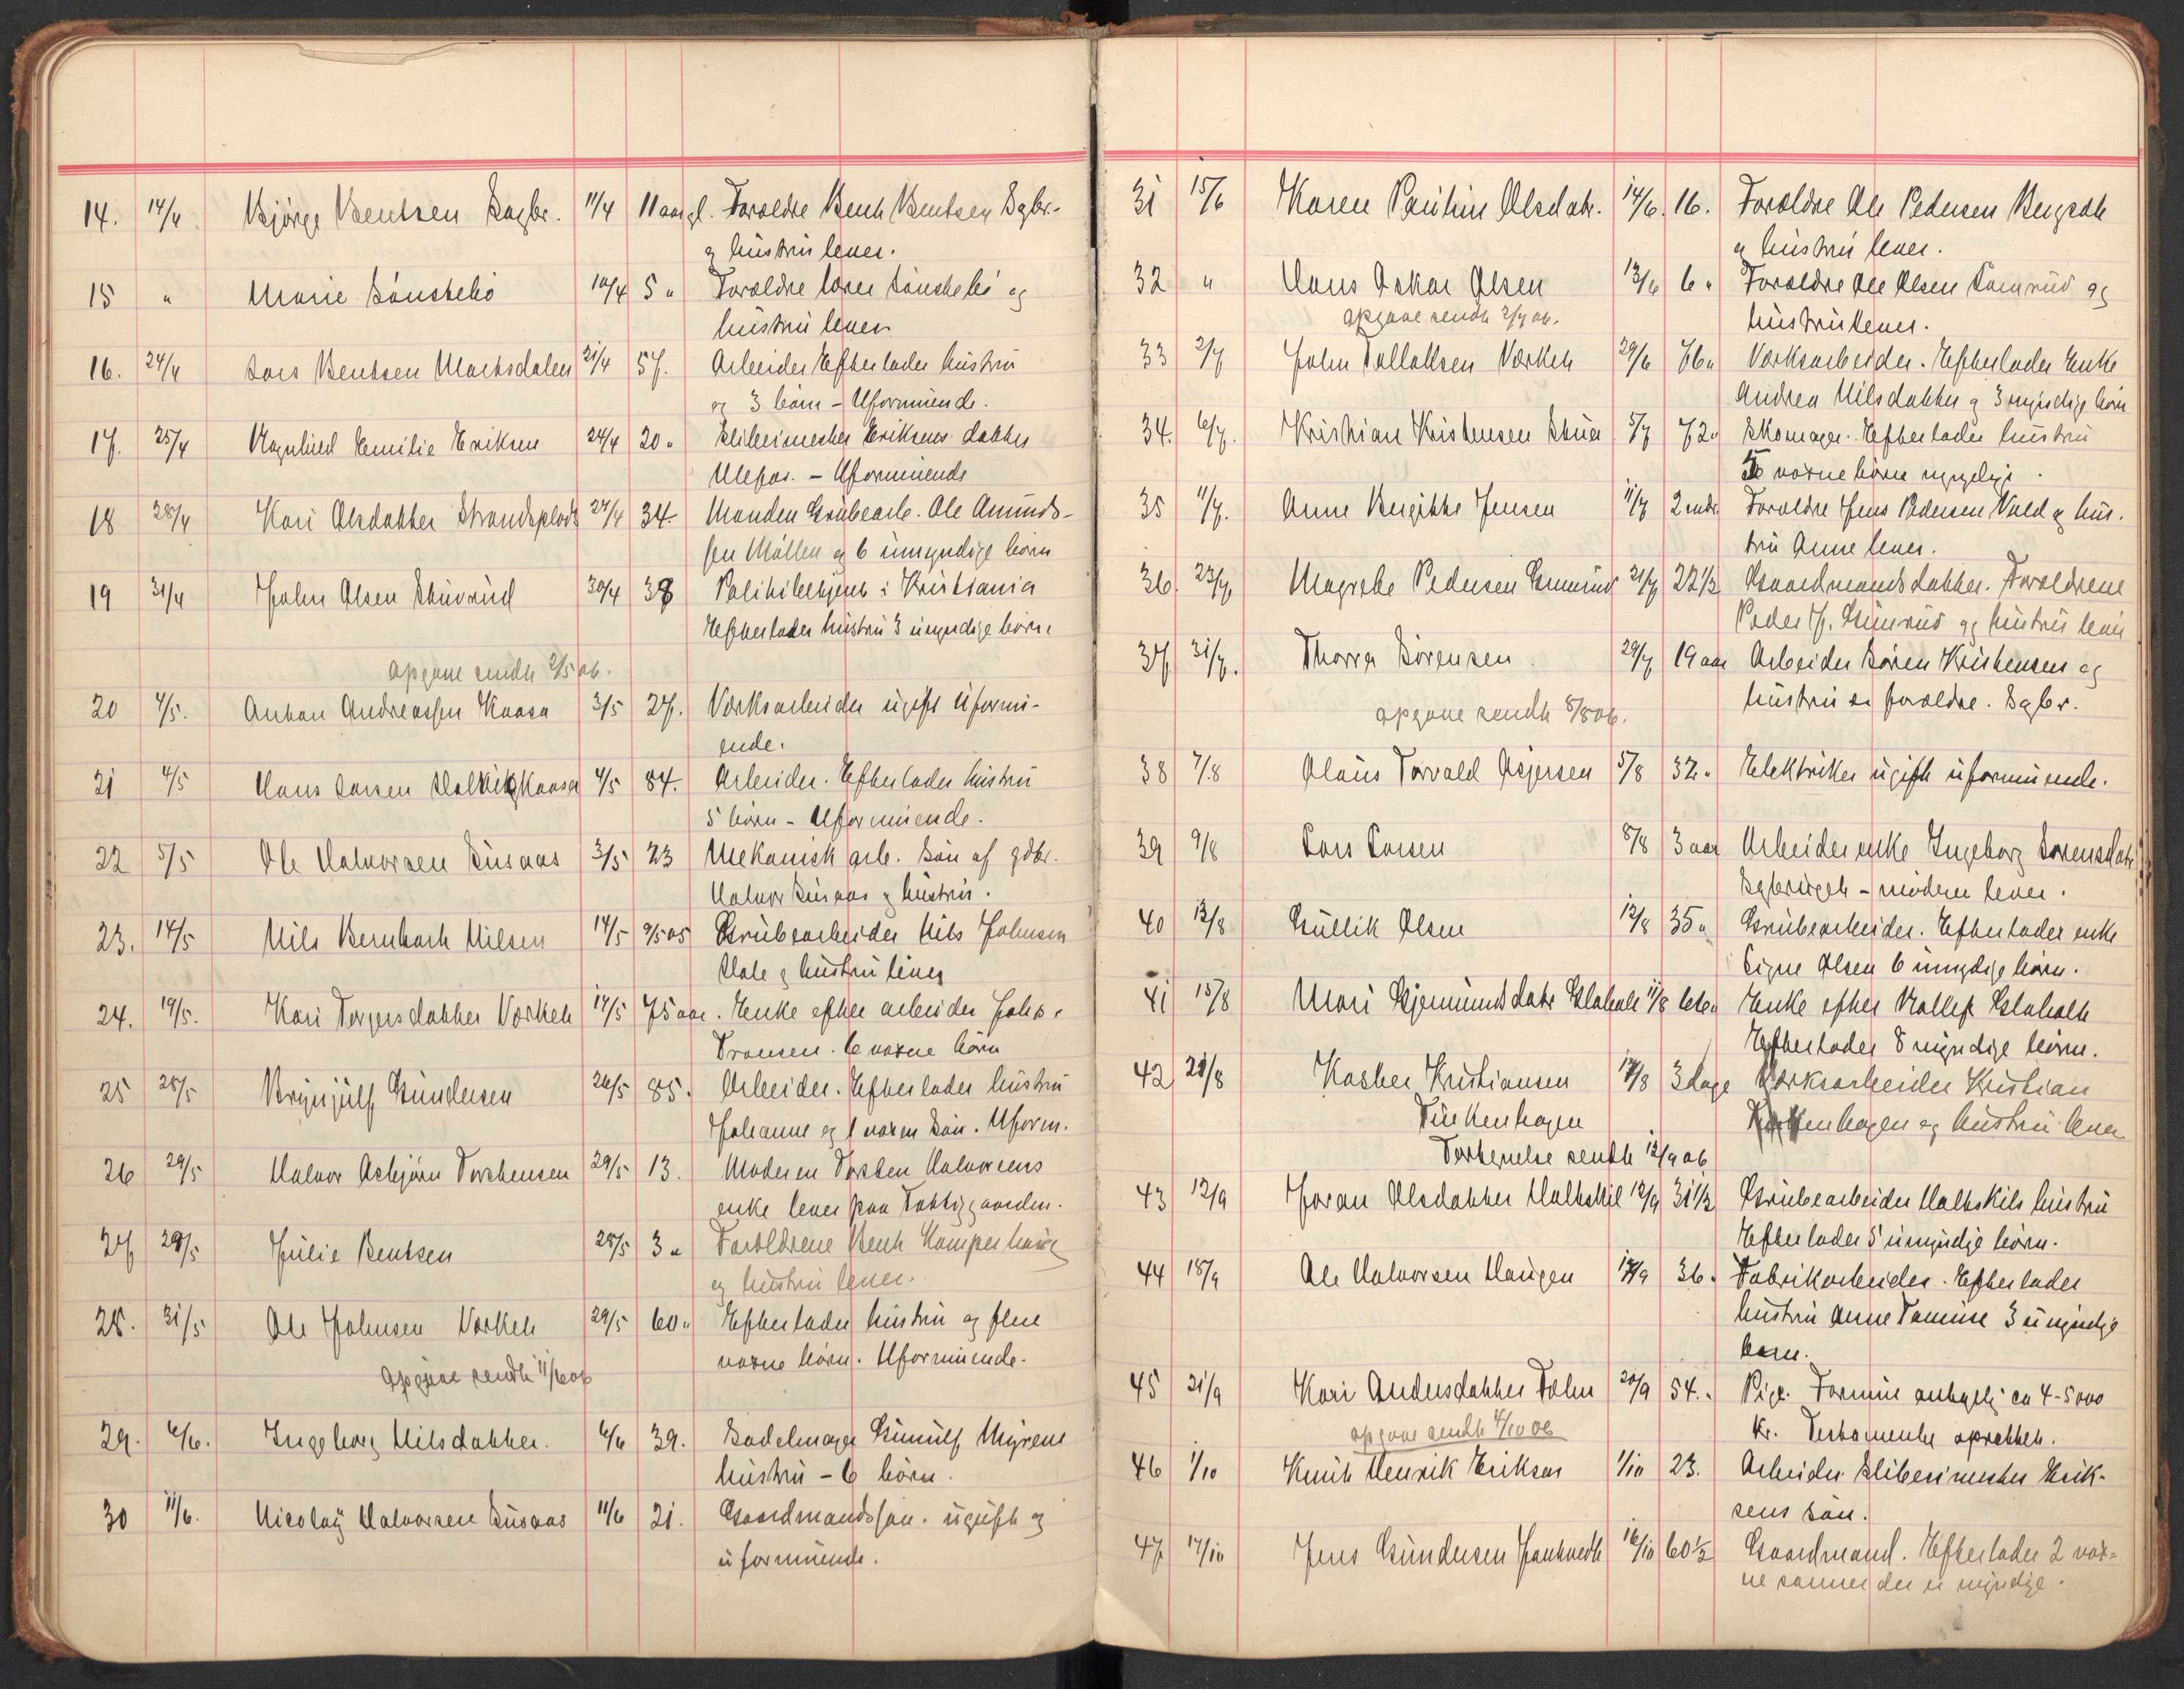 14. 14/4 Bjørge Bentsen Sagbr. 11/4 11 aar gl. Foreldre Bent Bentsen Sgbr.
og hustru lever.
15 " Marie Sønstebö 10/4 5 " Foreldre Lars Sönstebö og
hustru lever
16. 24/4 Lars Bentsen Marksdalen 21/4 57. Arbeider Efterlader hustru
og 3 børn - Uformuende.
17. 25/4 Ragnhild Emilie Eriksen 24/4 20 " Sliberimester Eriksens datter
Ulefos. - Uformuende
18 28/4 Kari Olsdatter Strandsplads 27/4 34. Manden Grubearb. Ole Amunds-
sen Møllen og 6 umyndige børn
19 31/4 John Olsen Skuvrud 30/4 38 Politibetjent i Kristiania
Efterlader hustru 3 umyndige børn.
opgave sendt 2/5 06.
20 4/5. Anton Andreassen Kaasa 3/5 27. Værksarbeider ugift uformu-
ende.
21 4/5 Hans Larsen Kaasa 4/5 84. Arbeider. Efterlader hustru
5 børn - Uformuende.
22 5/5 Ole Halvorsen Susaas 3/5 23 Mekanisk arb. Søn af gdbr.
Halvor Susaas og hustru.
23. 14/5 Nils Bernhard Nilsen 14/5 9/5 05 Grubearbeider Nils Johnsen
og hustru lever
24. 19/5. Kari Torgersdatter Verket 17/5 75 aar. Enke efter arbeider Johs.
Transen. 6 voxne børn
25 28/5 Brynjulf Gundersen 26/5 85. Arbeider. Efterlader hustru
Johanne og 1 voxen Søn. Uform.
26 29/5 Halvor Asbjørn Torstensen 29/5 13. Moderen Torsten Halvorsens
enke lever paa
27 29/5 Julie Bentsen 28/5 3 " Forældrene Bent Kamperhaug
og hustru lever.
28. 31/5 Ole Johnsen Værket 29/5 60 " Efterlader hustru og flere
voxne børn. Uformuende.
opgave sendt 11/6 06
29. 6/6. Ingeborg Nilsdatter. 4/6 39. Sadelmager Gunulf Myrens
hustru - 6 børn.
30 11/6. Nicolay Halvorsen Susaas 11/6 21. Gaardmandssøn. ugift og
uformuende.
31 15/6 Karen Pauline Olsdatr. 14/6. 16. Foreldre Ole Pedersen
og hustru lever.
32 " Hans Oskar Olsen 13/6 6 " Foreldre Ole Olsen Tamrud og
hustru lever.
opgave sendt 2/7 06.
33 2/7 John Tallaksen Værket 29/6 76 " Værksarbeider. Efterlader Enke
Andrea Nilsdatter og 3 myndige børn
34. 6/7. Kristian Kristensen Skua 5/7 72 " Skomager. Efterlader hustru
5 voxne børn myndige.
35 11/7. Anne Bergitte Jensen 11/7 2 mdr. Foreldre Jens Pedersen Vald og hus.
tru Anne lever.
36. 23/7 Margrethe Pedersen Gumrud 21/7 22 1/2 Gaardmandsdatter. Foreldrene
Peder H. Gumrud og hustru lever
37 31/7. Thorra Sørensen 29/7 19 aar Arbeider Søren Kristensen og
hustru er foreldre. Sgbr.
opgave sendt 5/8 06.
38 7/8 Olaus Torvald Asjersen 5/8 32 " Elektriker ugift uformuende.
39 9/8 Lars Larsen 8/8 3 aar Arbeiderenke Ingeborg Sørensdatr
- moderen lever.
40 13/8 Gullik Olsen 12/8 35 " Grubearbeider. Efterlader enke
Signe Olsen 6 umyndige børn.
41 15/8 Mari Gjermundsdatr Glaholt 11/8 66 " Enke efter Rollef Glaholt
Efterlader 8 myndige børn.
42 21/8 Kasper Kristiansen 17/8 3 dage Værksarbeider Kristian
Finkenhagen
Finkenhagen og hustru lever
Fortegnelse sendt 12/9 06
43 12/9 Joran Olsdatter Haltskil 12/9 31 1/2 Grubearbeider Haltskils hustru
Efterlader 5 umyndige børn.
44 18/9 Ole Halvorsen Haugen 17/9 36. Fabrikarbeider. Efterlader
hustru Anne Tomine 3 umyndige
børn.
45 21/9 Kari Andersdatter Tolm 20/9 54. Pige. Formue antagelig ca 4-5000
kr. Testamente oprettet.
opgave sendt 4/10 06
46 1/10 Knut Henrik Eriksen 1/10 23. Arbeider Sliberimester Erik-
sens søn.
47 17/10 Jens Gundersen Jantvedt 16/10 60 1/2 Gaardmand. Efterlader 2 vox-
ne sønner der er myndige.